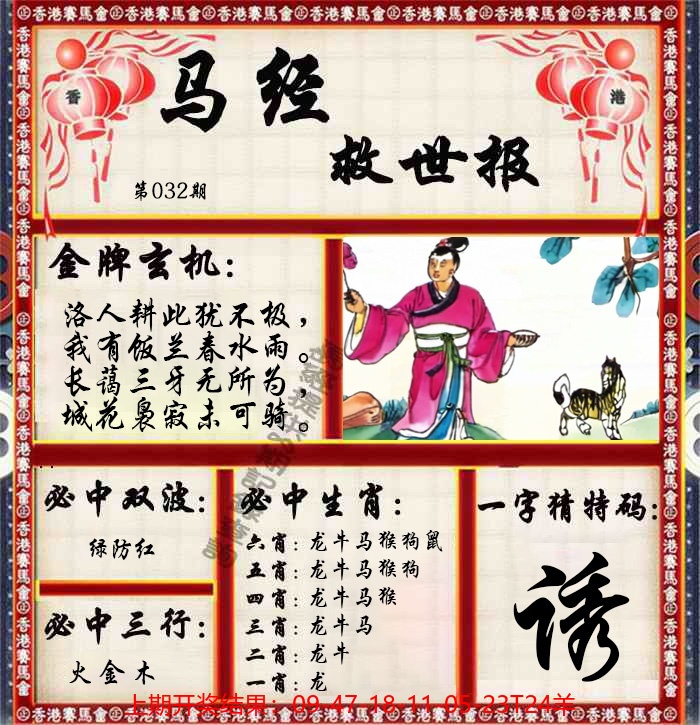 香港賽馬會
香
港
马经
救世报
第032期
金牌玄机：
洛人耕此犹不极，
我有饭兰春水雨。
长蔼三牙无所为，
城花袅寂未可骑。
必中双波：
绿防红
必中三行：
火金木
必中生肖：
六肖：龙牛马猴狗鼠
五肖：龙牛马猴狗
四肖：龙牛马猴
三肖：龙牛马
二肖：龙牛
一肖：龙
一字猜特码：
诱
上期开奖结果：09-47-18-11-05-23T24羊